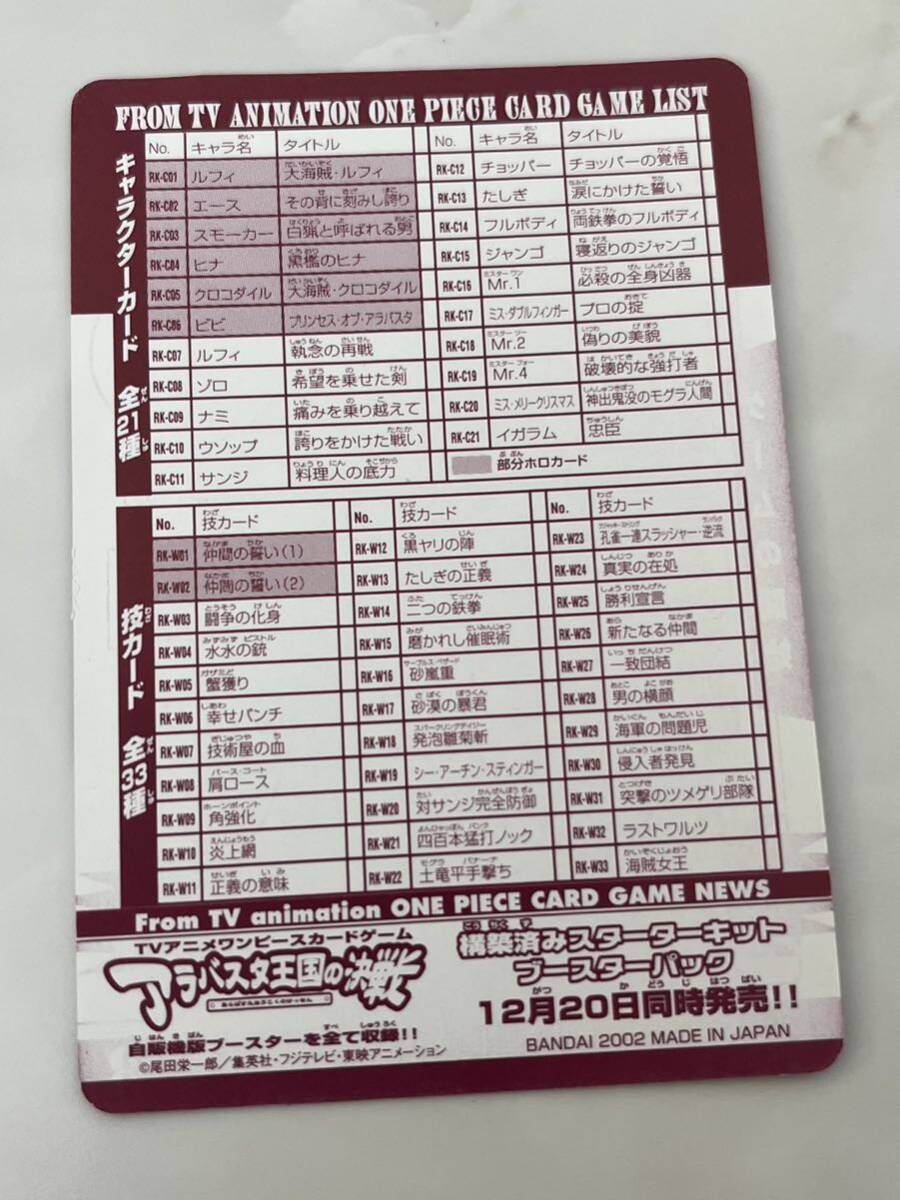 FROM TV ANIMATION ONE PIECE CARD GAME LIST
キャラクターカード 全21種
No. キャラ名 タイトル
RK-C01 ルフィ 大海賊・ルフィ
RK-C02 エース その背に刻みし誇り
RK-C03 スモーカー 白猟と呼ばれる男
RK-C04 ヒナ 黒檻のヒナ
RK-C05 クロコダイル 大海賊・クロコダイル
RK-C06 ビビ プリンセス・オブ・アラバスタ
RK-C07 ルフィ 執念の再戦
RK-C08 ゾロ 希望を乗せた剣
RK-C09 ナミ 痛みを乗り越えて
RK-C10 ウソップ 誇りをかけた戦い
RK-C11 サンジ 料理人の底力
No. キャラ名 タイトル
RK-C12 チョッパー チョッパーの覚悟
RK-C13 たしぎ 涙にかけた誓い
RK-C14 フルボディ 両鉄拳のフルボディ
RK-C15 ジャンゴ 寝返りのジャンゴ
RK-C16 Mr.1 必殺の全身凶器
RK-C17 ミス・ダブルフィンガー プロの掟
RK-C18 Mr.2 偽りの美貌
RK-C19 Mr.4 破壊的な強打者
RK-C20 ミス・メリークリスマス 神出鬼没のモグラ人間
RK-C21 イガラム 忠臣
部分ホロカード
技カード 全33種
No. 技カード
RK-W01 仲間の誓い(1)
RK-W02 仲間の誓い(2)
RK-W03 闘争の化身
RK-W04 水水の銃
RK-W05 蟹獲り
RK-W06 幸せパンチ
RK-W07 技術屋の血
RK-W08 肩ロース
RK-W09 角強化
RK-W10 炎上網
RK-W11 正義の意味
No. 技カード
RK-W12 黒ヤリの陣
RK-W13 たしぎの正義
RK-W14 二つの鉄拳
RK-W15 磨かれし催眠術
RK-W16 砂嵐重
RK-W17 砂漠の暴君
RK-W18 発泡雛菊斬
RK-W19 シー・アーチン・スティンガー
RK-W20 対サンジ完全防御
RK-W21 四百本猛打ノック
RK-W22 土竜平手撃ち
No. 技カード
RK-W23 孔雀一連スラッシャー・逆流
RK-W24 真実の在処
RK-W25 勝利宣言
RK-W26 新たなる仲間
RK-W27 一致団結
RK-W28 男の横顔
RK-W29 海軍の問題児
RK-W30 侵入者発見
RK-W31 突撃のツメゲリ部隊
RK-W32 ラストワルツ
RK-W33 海賊女王
From TV animation ONE PIECE CARD GAME NEWS
TVアニメワンピースカードゲーム
アラバスタ王国の決戦
あらばすたおうこくのけっせん
自販機版ブースターを全て収録!!
©尾田栄一郎/集英社・フジテレビ・東映アニメーション
構築済みスターターキット
ブースターパック
12月20日同時発売!!
BANDAI 2002 MADE IN JAPAN